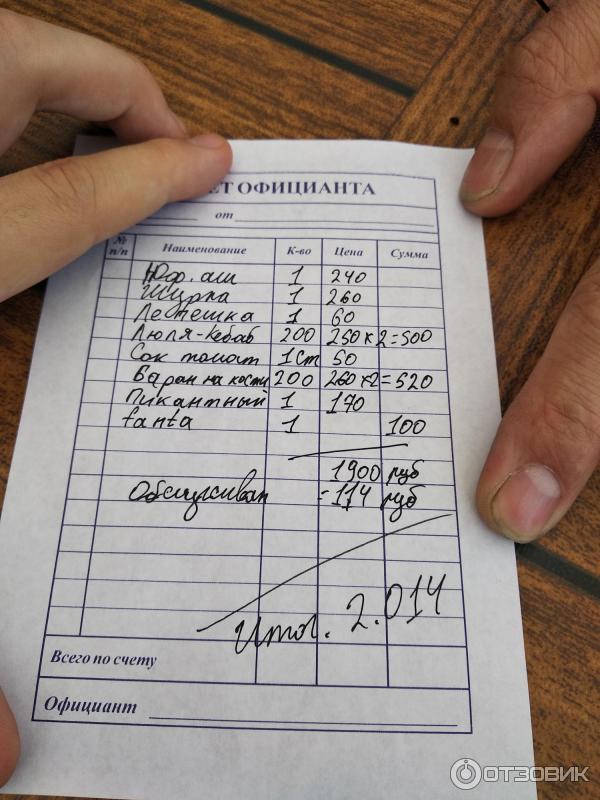 ЕТ ОФИЦИАНТА
от
№ п/п Наименование К-во Цена Сумма
Юф. аш 1 240
Шурпа 1 260
Лепешка 1 60
Люля-кебаб 200 250 х 2 = 500
Сок томат 1 ст 50
Баран на кости 200 260 х 2 = 520
Пикантный 1 170
fanta 1 100
1900 руб
Обслуживан = 114 руб
Итог. 2.014
Всего по счету
Официант
ОТЗОВИК